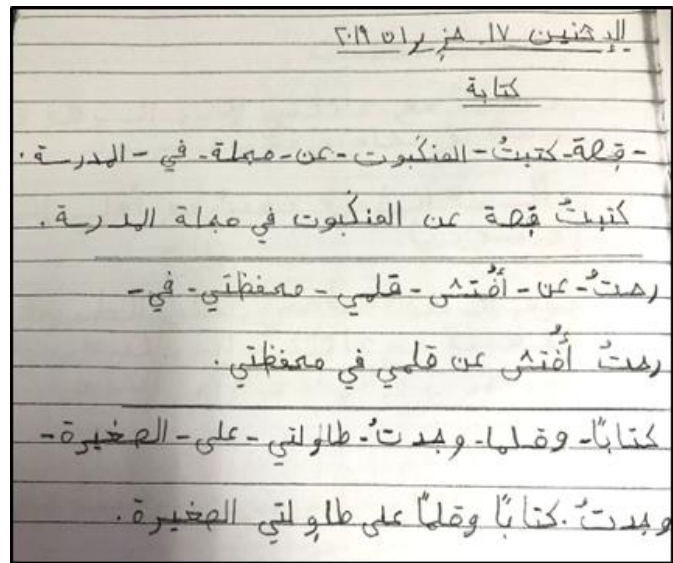 الإثنين ١٧ حزيران ٢٠١٩
كتابة
- قصة - كتبتُ - العنكبوت - عن - مجلة - في - المدرسة .
كتبتُ قصة عن العنكبوت في مجلة المدرسة .
رحتُ - عن - أُفتش - قلمي - محفظتي - في -
رحتُ أُفتش عن قلمي في محفظتي .
كتابًا - وقلما - وجدتُ - طاولتي - على - الصغيرة -
وجدتُ . كتابًا وقلمًا على طاولتي الصغيرة .